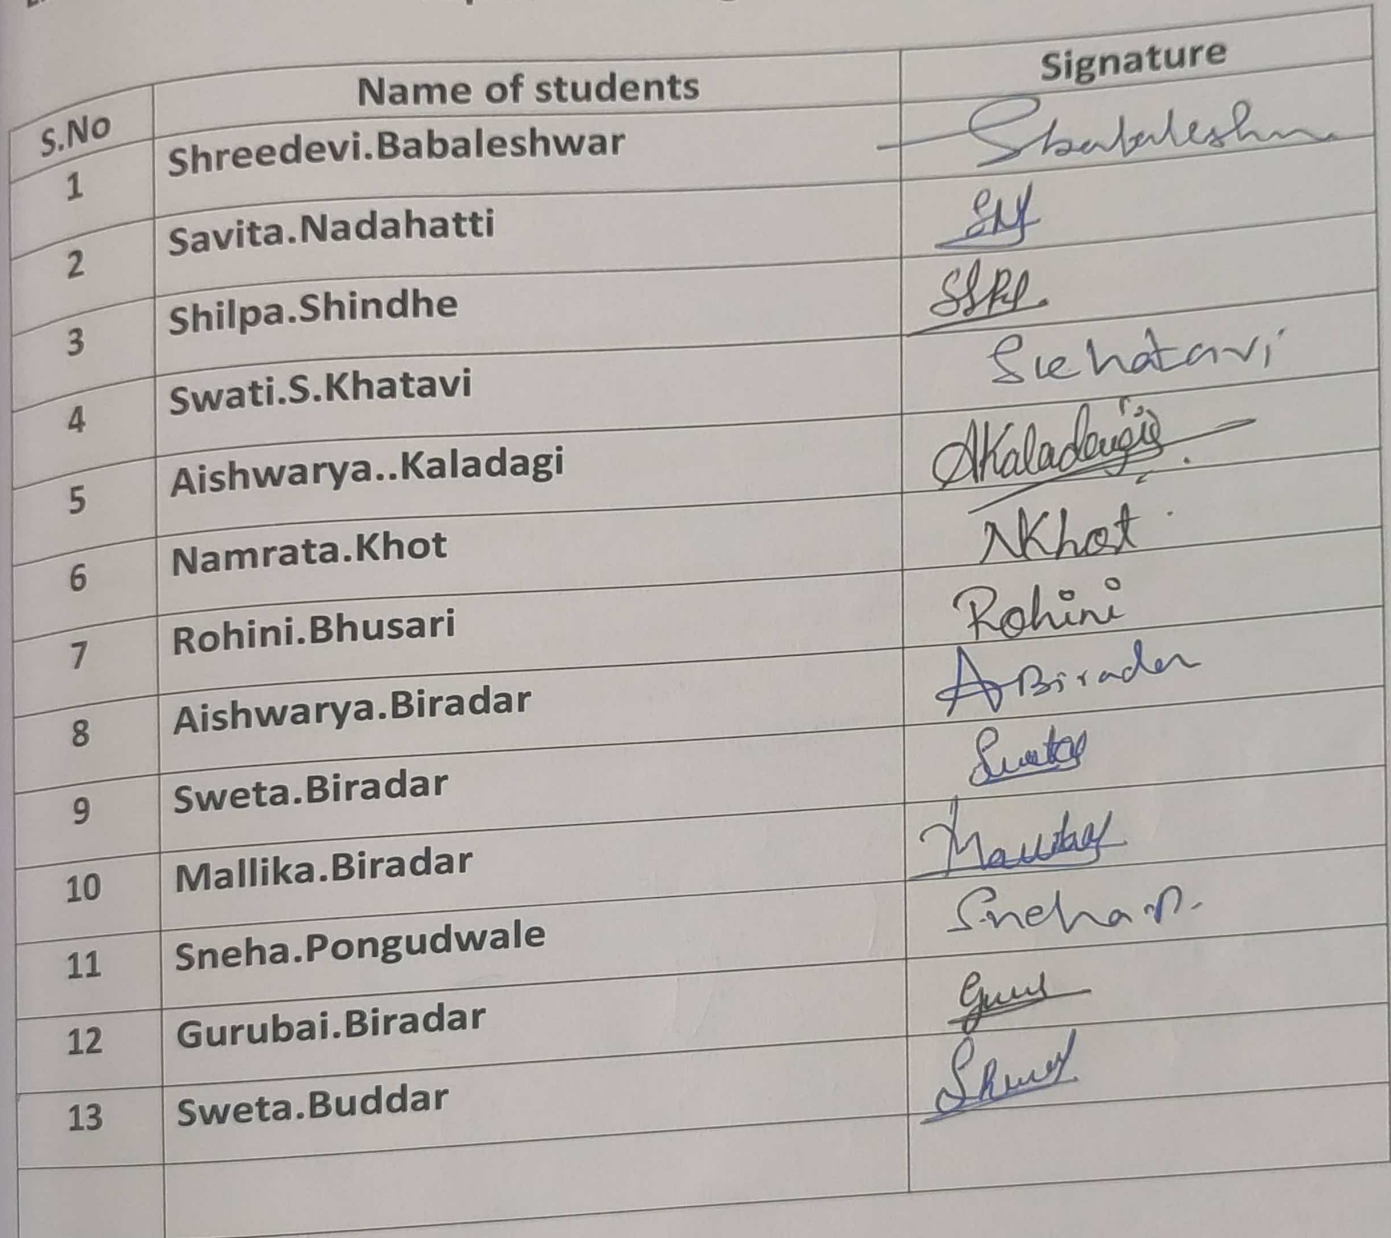 S.No Name of students Signature
1 Shreedevi.Babaleshwar Sbabaleshw
2 Savita.Nadahatti
3 Shilpa.Shindhe
4 Swati.S.Khatavi
5 Aishwarya..Kaladagi AKaladagi
6 Namrata.Khot NKhot
7 Rohini.Bhusari Rohini
8 Aishwarya.Biradar ABiradar
9 Sweta.Biradar Sweta
10 Mallika.Biradar
11 Sneha.Pongudwale Sneha.P.
12 Gurubai.Biradar
13 Sweta.Buddar